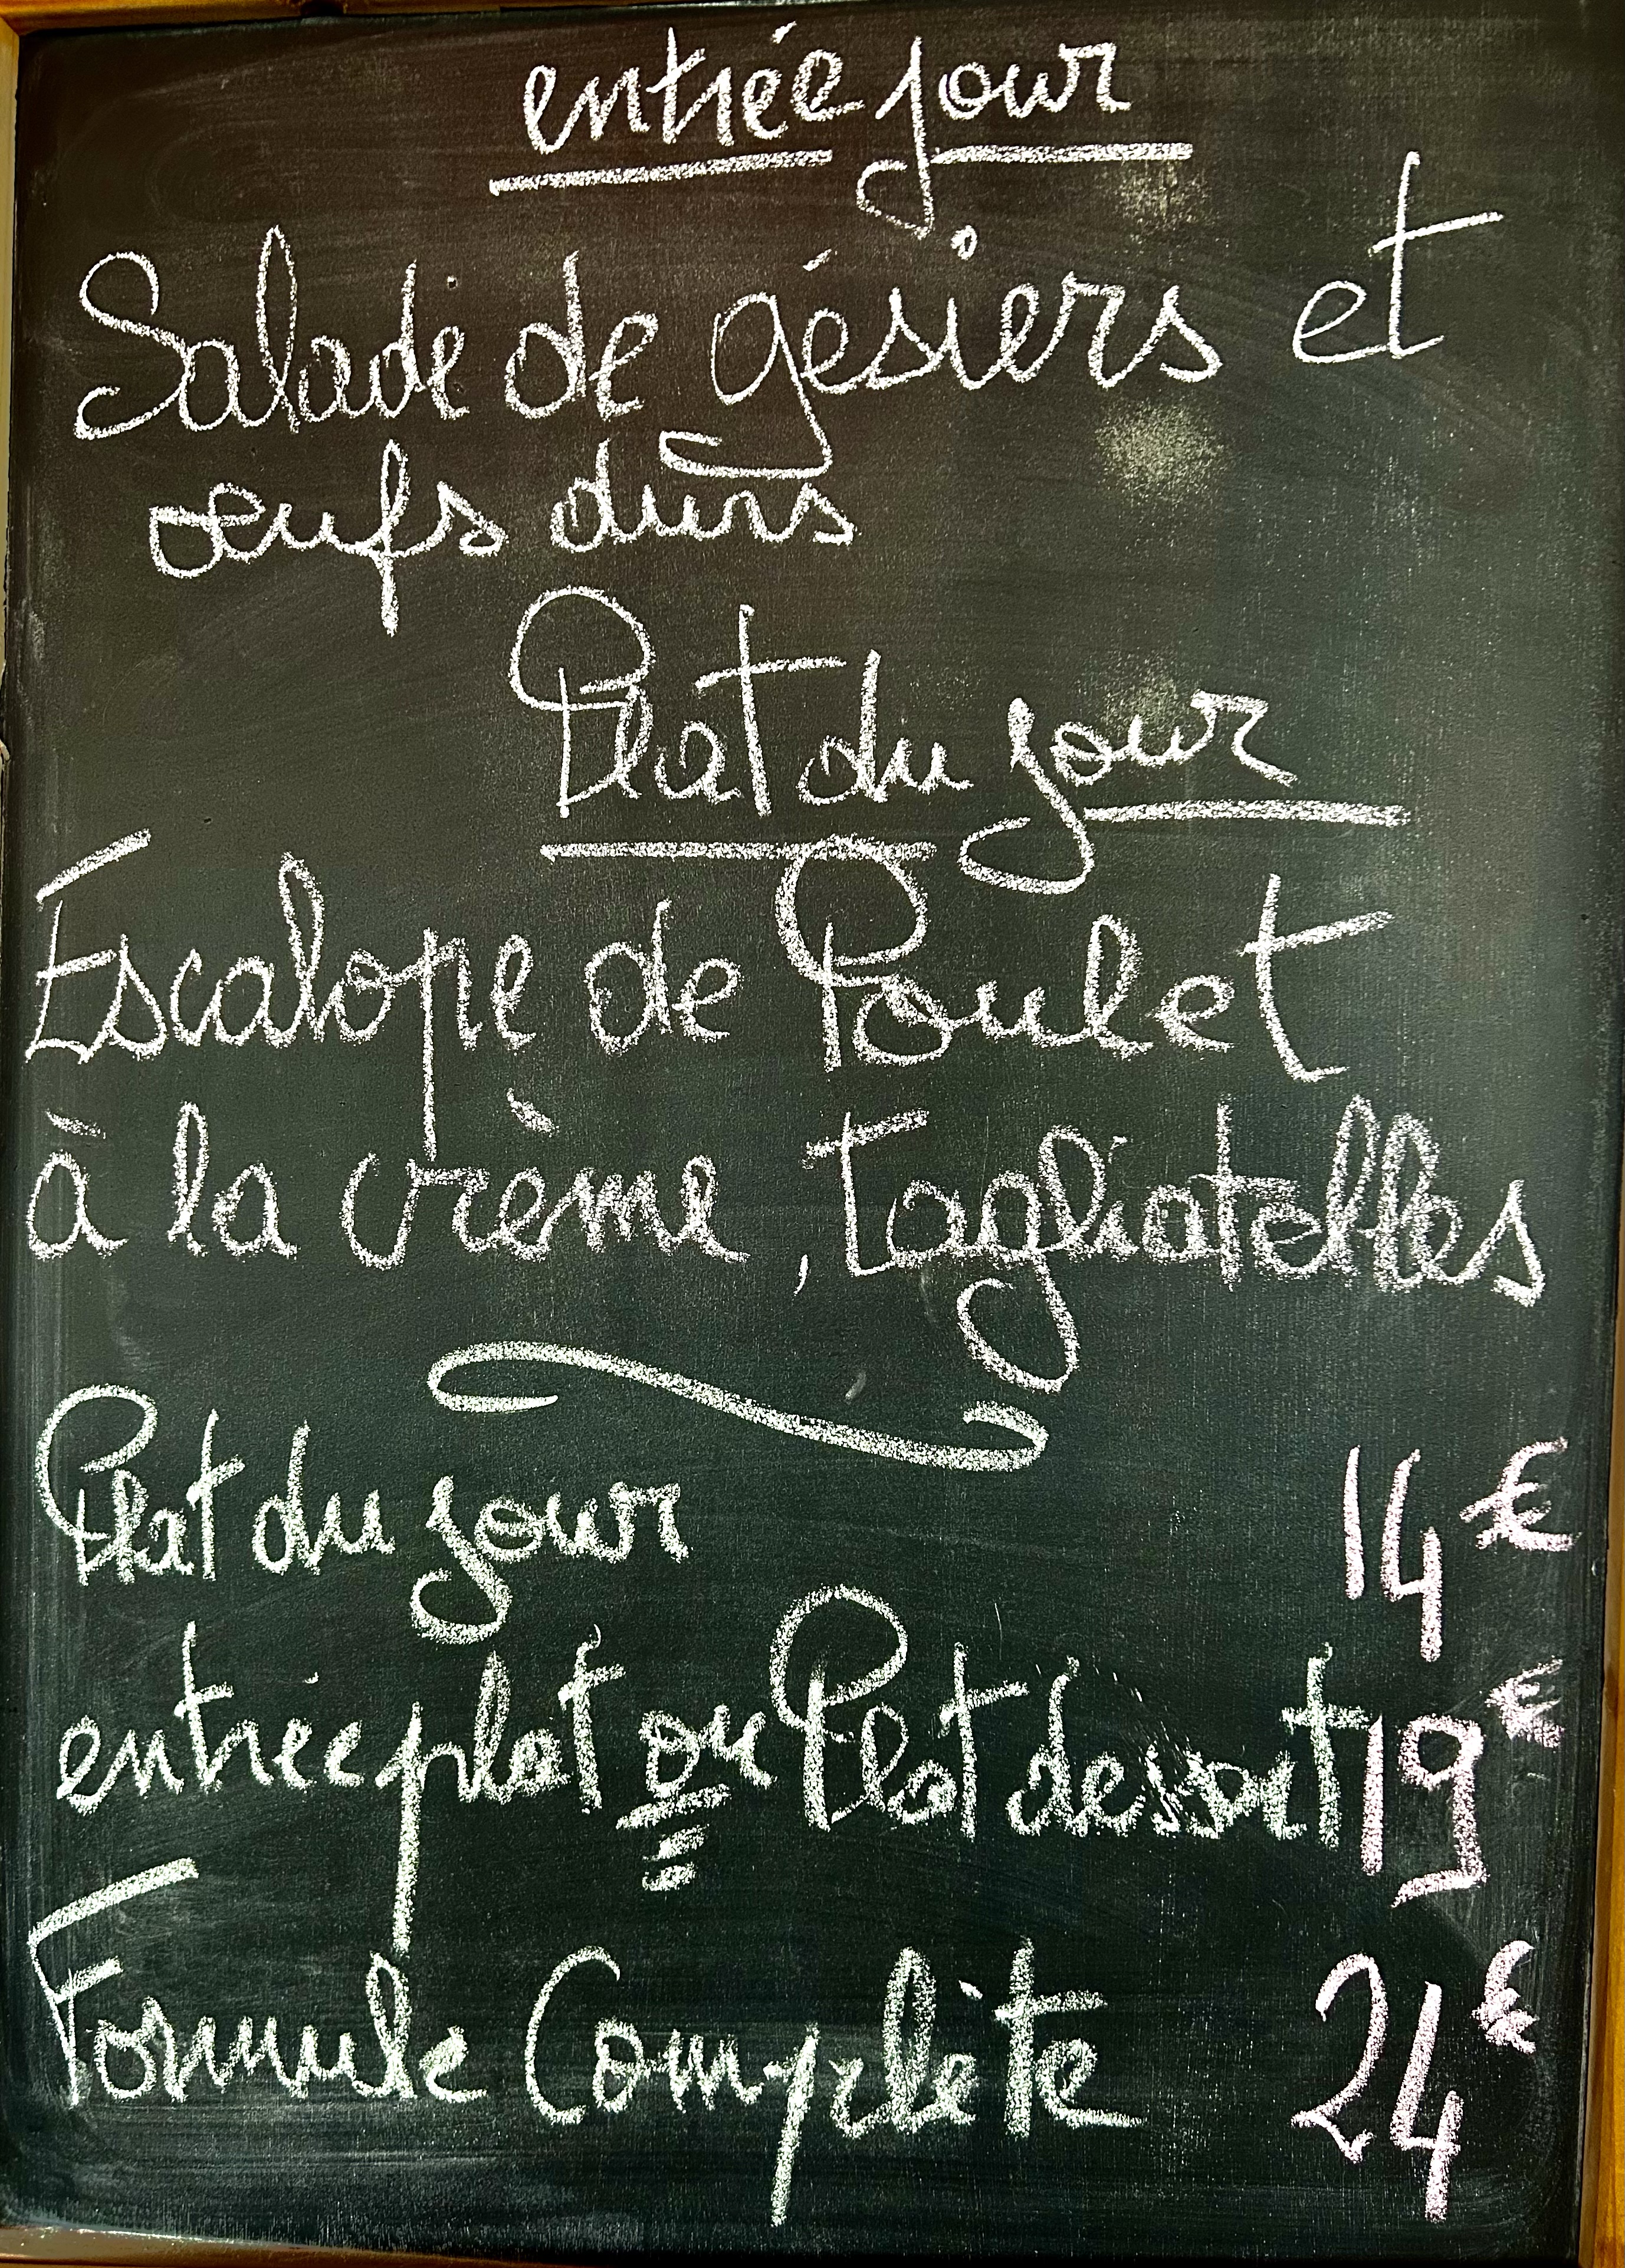 entrée jour
Salade de gésiers et
œufs durs
Plat du jour
Escalope de Poulet
à la crème, Tagliatelles
Plat du jour 14€
entrée plat ou Plat dessert 19€
Formule Complète 24€